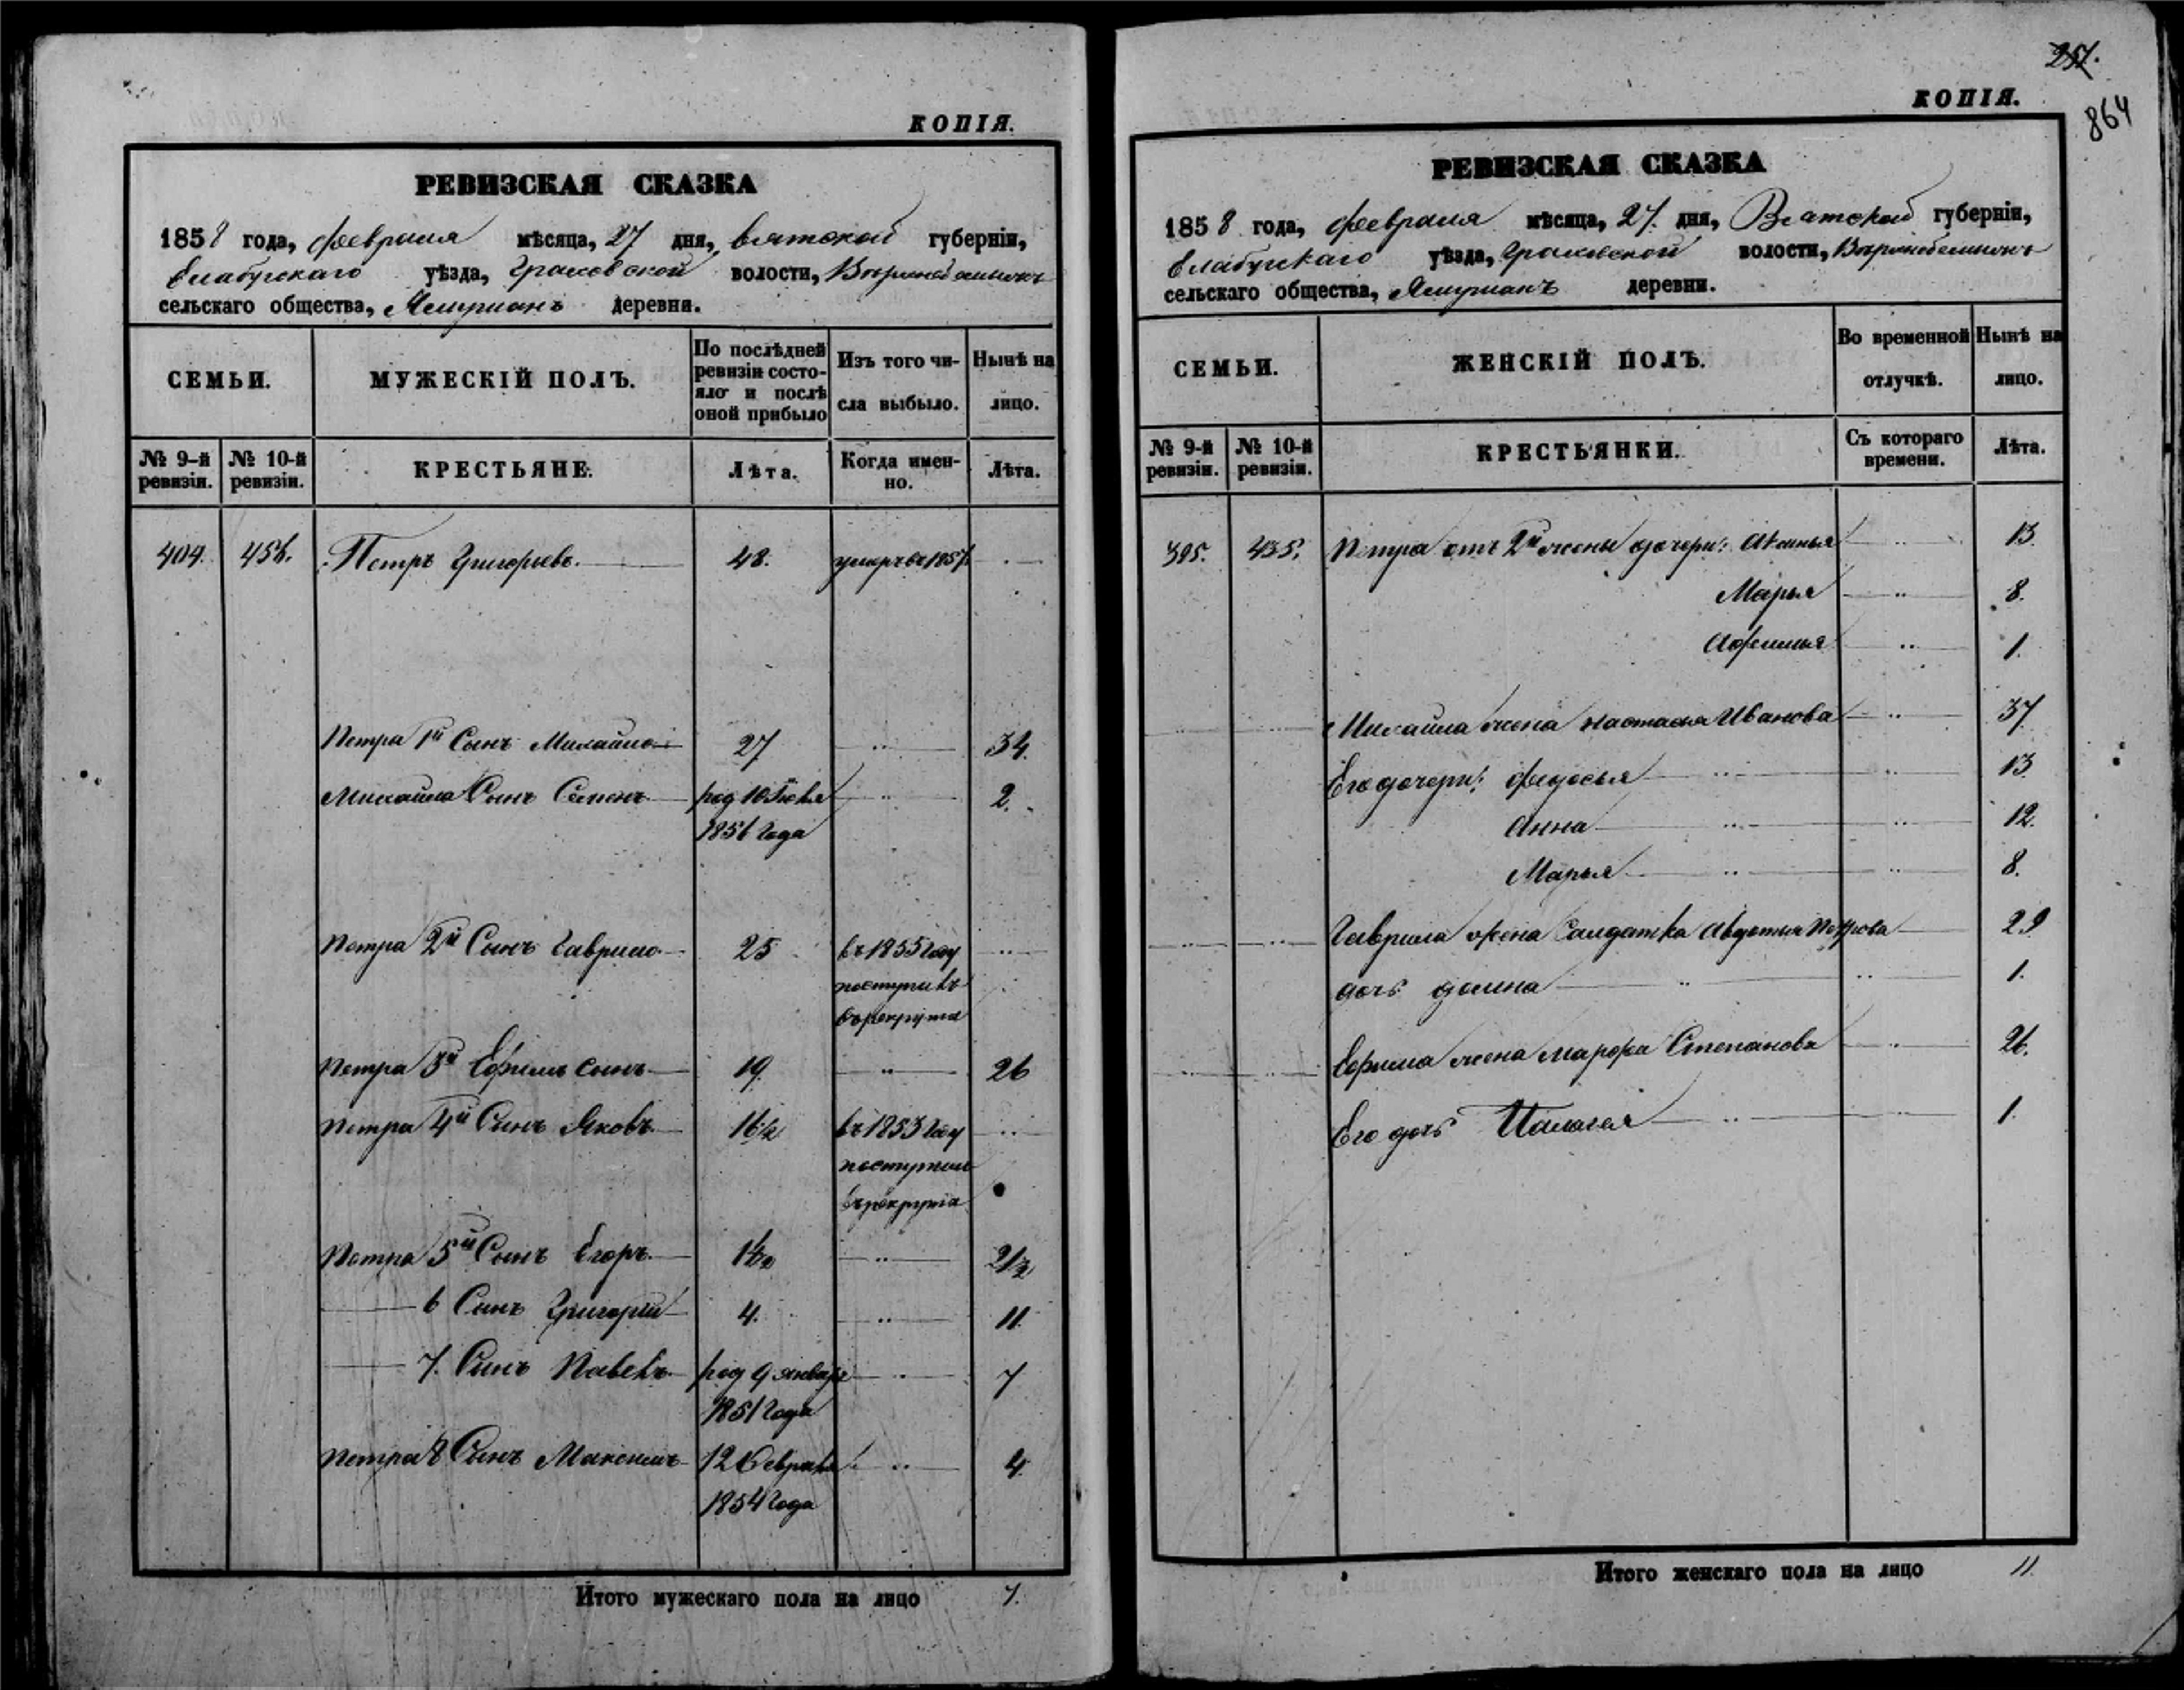 КОПІЯ.
РЕВИЗСКАЯ СКАЗКА
1858 года, февраля мѣсяца, 27 дня, вятской губерніи,
Елабугскаго уѣзда, Граховской волости,
сельскаго общества, деревни.
СЕМЬИ.
МУЖЕСКІЙ ПОЛЪ.
По послѣдней
ревизіи состо-
яло и послѣ
оной прибыло
Изъ того чи-
сла выбыло.
Нынѣ на
лицо.
№ 9-й
ревизіи.
№ 10-й
ревизіи.
КРЕСТЬЯНЕ.
Лѣта.
Когда имен-
но.
Лѣта.
404. Петръ Григорьевъ. 48.
Петра 1й Сынъ Михайло 27 34.
Михайла Сынъ Семенъ род 10 2.
1856 года
Петра 2й Сынъ Гаврило 25 въ 1855 году
поступивъ
въ рекрута
Петра 3й Ефимъ сынъ 19. 26
Петра 4й Сынъ Яковъ 16½ въ 1853 году
поступилъ
въ рекрута
Петра 5й Сынъ Егоръ 21½
6 Сынъ Григорій 4. 11.
7. Сынъ Павелъ род 9 января 7
1851 года
Петра 8 Сынъ Максимъ 12 Февраля 4.
1854 года
Итого мужескаго пола на лицо 7.
257.
864
КОПІЯ.
РЕВИЗСКАЯ СКАЗКА
1858 года, февраля мѣсяца, 27. дня, Вятской губерніи,
Елабугскаго уѣзда, Граховской волости,
сельскаго общества, деревни.
СЕМЬИ.
ЖЕНСКІЙ ПОЛЪ.
Во временной
отлучкѣ.
Нынѣ на
лицо.
№ 9-й
ревизіи.
№ 10-й
ревизіи.
КРЕСТЬЯНКИ.
Съ котораго
времени.
Лѣта.
395. 435. Петра отъ 2й жены дочери: 13.
Марья 8.
Афимья 1.
Михайла жена Настасья Иванова 37
Его дочери: Федосья 13
Анна 12.
Марья 8.
Гаврила жена Салдатка Авдотья Петрова 29
дочь домна 1.
Ефима жена Марфа Степанова 26.
Его дочь Палагея 1.
Итого женскаго пола на лицо 11